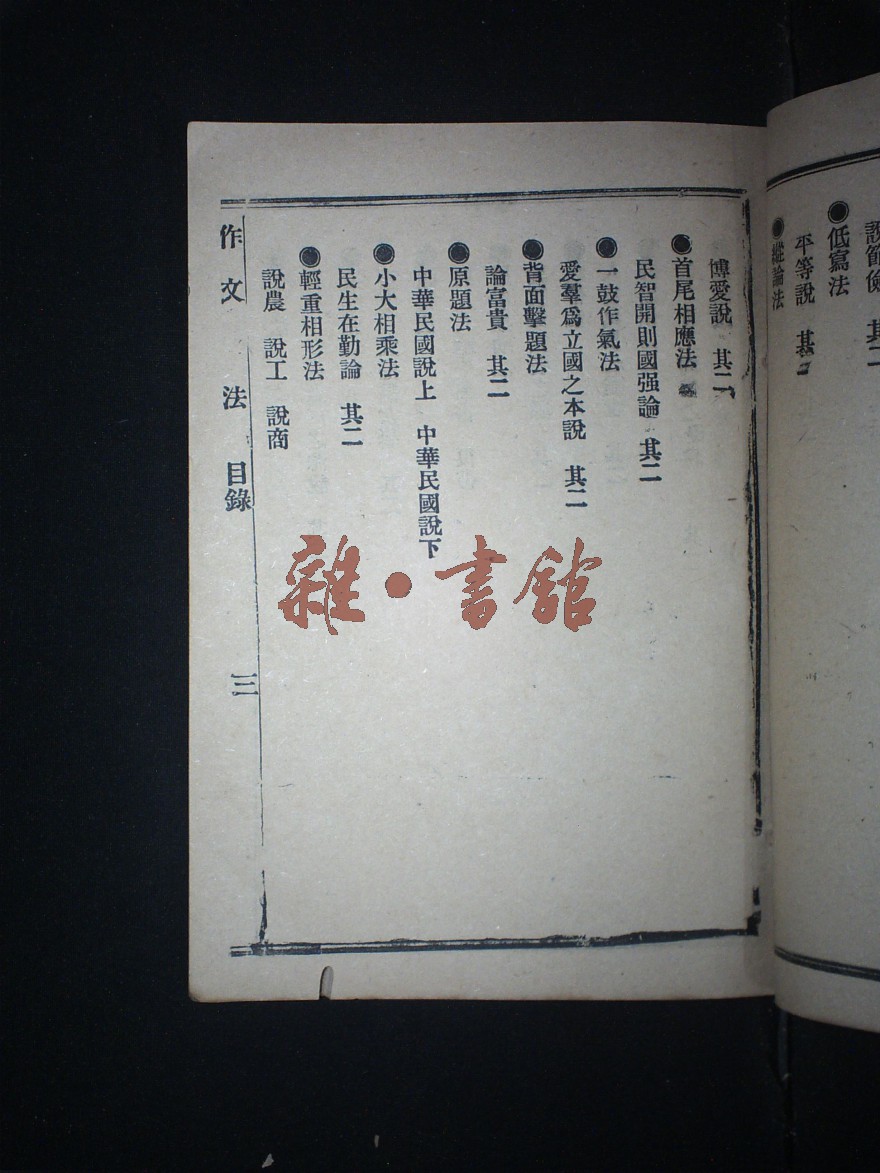 說節儉 其二
●低寫法
平等說 其二
●縱論法
博愛說 其二
●首尾相應法
民智開則國强論 其二
●一鼓作氣法
愛羣爲立國之本說 其二
●背面擊題法
論富貴 其二
●原題法
中華民國說上 中華民國說下
●小大相乘法
民生在勤論 其二
●輕重相形法
說農 說工 說商
作文法 目錄 三
雜·書館